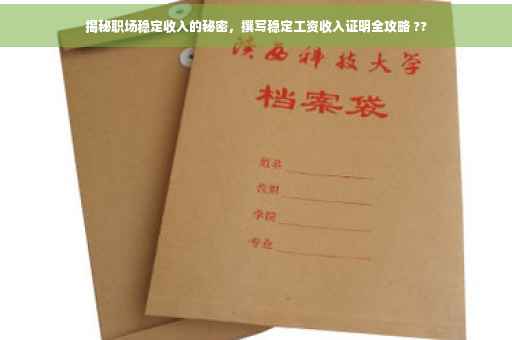 揭秘职场稳定收入的秘密，撰写稳定工资收入证明全攻略 ??
陕西科技大学
档案袋
学院
专业